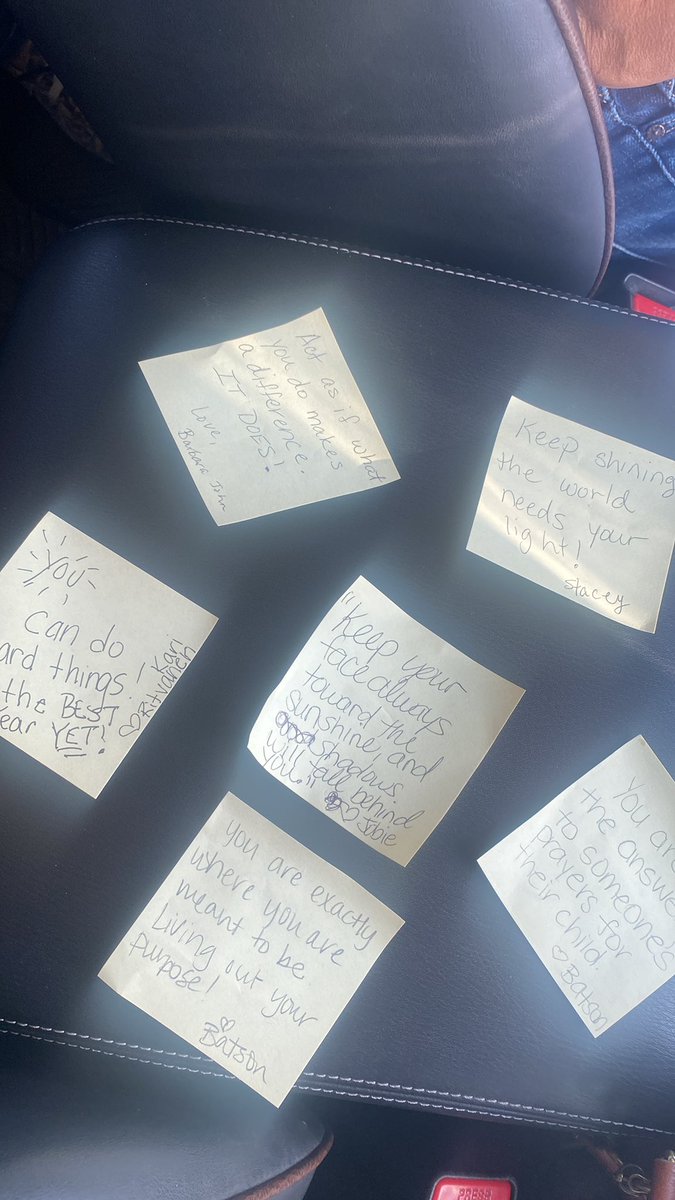 Act as if what
you do makes
a difference.
IT DOES!
Love,
Barbara John
Keep shining
the world
needs your
light!
Stacey
YOU
can do
ard things!
the BEST
ear YET!
♡ Kari
"Keep your
face always
toward the
sunshine, and
shadows
will fall behind
you."
♡ Jobie
You are exactly
where you are
meant to be.
Living out your
purpose!
♡
Batson
You are
the answe
to someone's
prayers for
their child.
♡ Batson
PRESS